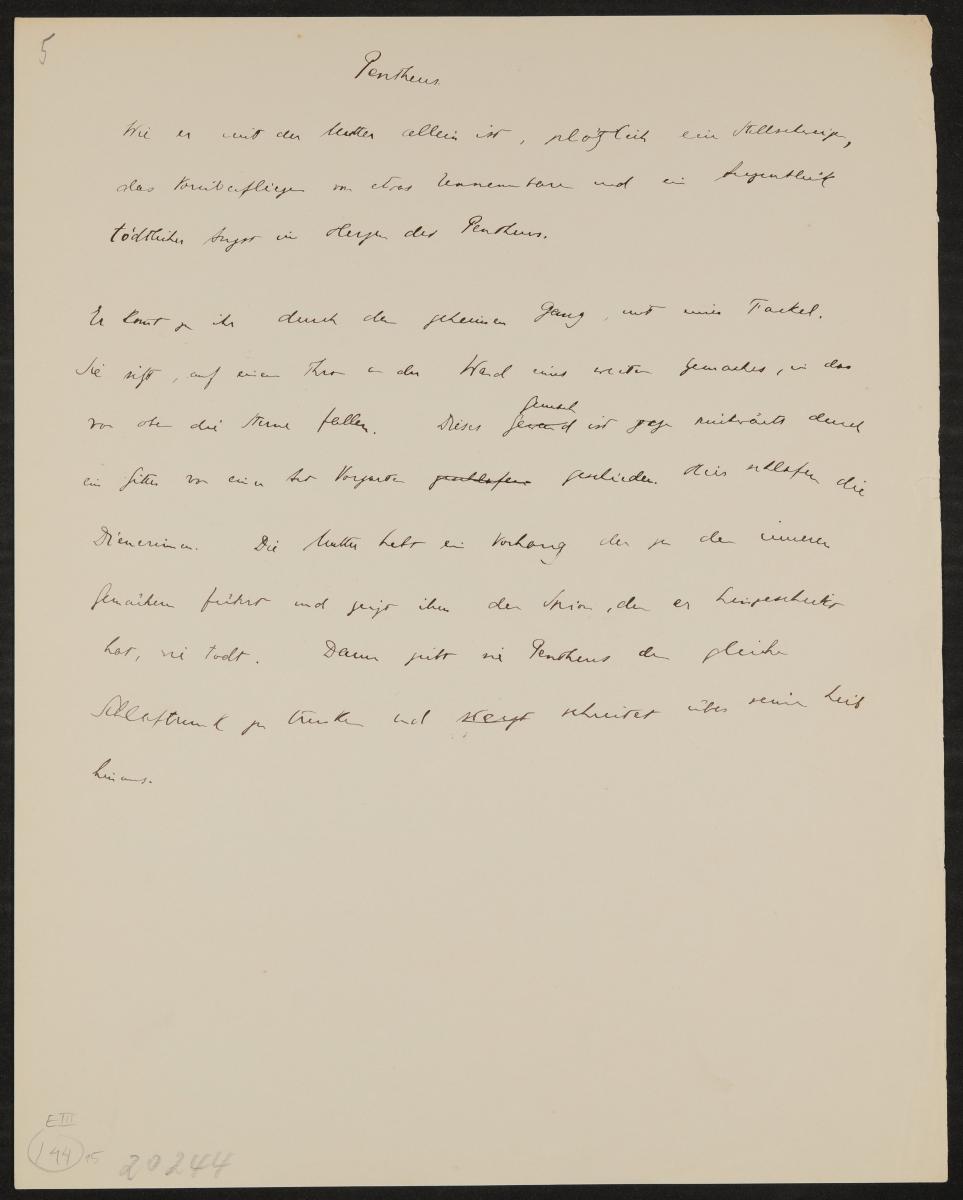 5
Pentheus.
Wie er mit der Mutter allein ist, plötzlich ein Stillschweigen,
das Vorüberfliegen von etwas Unnennbarem und ein Augenblick
tödtlicher Angst im Herzen des Pentheus.
Er komt zu ihr durch den geheimen Gang, mit einer Fackel.
Sie sitzt, auf einem Thron an der Wand eines weiten Gemaches, in das
von oben die Sterne fallen. Dieses Gewand ist gegen rückwärts durch
Gemach
ein Gitter von einer Art Vorgarten geschieden. Hier schlafen die
Dienerinnen. Die Mutter hebt ein Vorhang der zu den inneren
Gemächern führt und zeigt ihm den Spion, den er hingeschickt
hat, wie todt. Dann gibt sie Pentheus den gleichen
Schlaftrunk zu trinken und steigt schreitet über seinen Leib
hinaus.
E III
144
15
20244